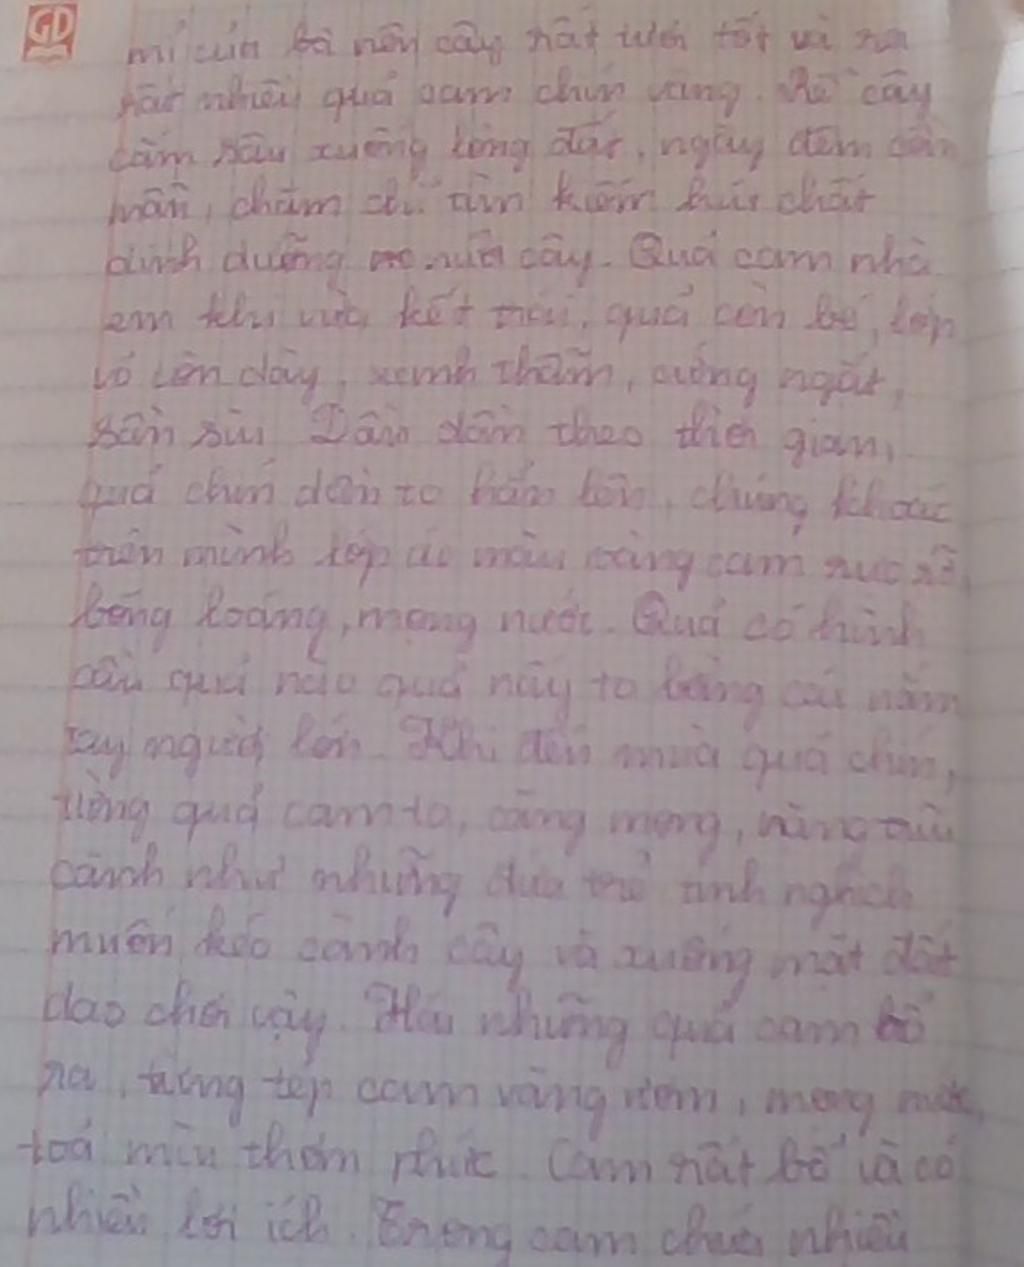 GD
mỉ của bà nên cây rất tươi tốt và ra
rất nhiều quả cam chín vàng. Rễ cây
cắm sâu xuống lòng đất, ngày đêm cần
mẫn, chăm chỉ tìm kiếm hút chất
dinh dưỡng nuôi cây. Quả cam nhà
em khi vừa kết trái, quả còn bé, lớp
vỏ còn dày, xanh thẫm, cứng ngắt,
sần sùi. Dần dần theo thời gian,
quả chín dần to hẳn lên, chúng khoác
trên mình lớp áo màu vàng cam rực rỡ,
bóng loáng, mọng nước. Quả có hình
cầu quả nào quả nấy to bằng cái nắm
tay người lớn. Khi đến mùa quả chín,
từng quả cam to, căng mọng, nặng trĩu
cành như những đứa trẻ tinh nghịch
muốn kéo cành cây và xuống mặt đất
dạo chơi vậy. Hái những quả cam bổ
ra, từng tép cam vàng ươm, mọng nước,
toả mùi thơm phức. Cam rất bổ và có
nhiều lợi ích. Trong cam chứa nhiều